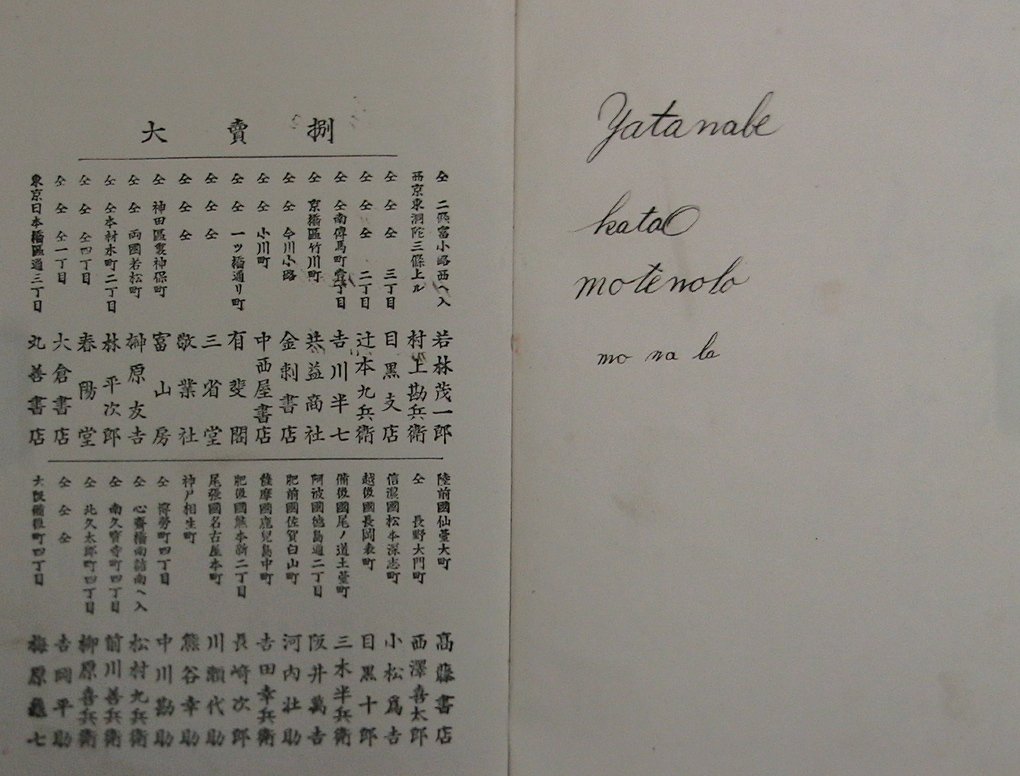 大賣捌
東京日本橋區通三丁目 丸善書店
仝 仝 仝一丁目 大倉書店
仝 仝 仝四丁目 春陽堂
仝 仝本材木町二丁目 林平次郎
仝 仝 両國若松町 榊原友吉
仝 神田區裏神保町 富山房
仝 仝 仝 敬業社
仝 仝 仝 三省堂
仝 仝 一ツ橋通リ町 有斐閣
仝 仝 小川町 中西屋書店
仝 仝 今川小路 金刺書店
仝 京橋區竹川町 共益商社
仝 仝南傳馬町壹丁目 吉川半七
仝 仝 仝 二丁目 辻本九兵衛
仝 仝 仝 三丁目 目黒支店
西京東洞院三條上ル 村上勘兵衛
仝 二條富小路西へ入 若林茂一郎
大阪備後町四丁目 梅原龜七
仝 仝 仝 吉岡平助
仝 北久太郎町四丁目 柳原喜兵衛
仝 南久寶寺町四丁目 前川善兵衛
仝 心齋橋南詰南へ入 松村九兵衛
仝 博勞町四丁目 中川勘助
神戸相生町 熊谷幸助
尾張國名古屋本町 川瀬代助
肥後國熊本新二丁目 長崎次郎
薩摩國鹿兒島中町 吉田幸兵衛
肥前國佐賀白山町 河内壮助
阿波國徳島通二丁目 阪井萬吉
備後國尾ノ道土堂町 三木半兵衛
越後國長岡表町 目黒十郎
信濃國松本深志町 小松爲吉
仝 長野大門町 西澤喜太郎
陸前國仙臺大町 高藤書店
Yatanabe
katao
motenolo
mo na la